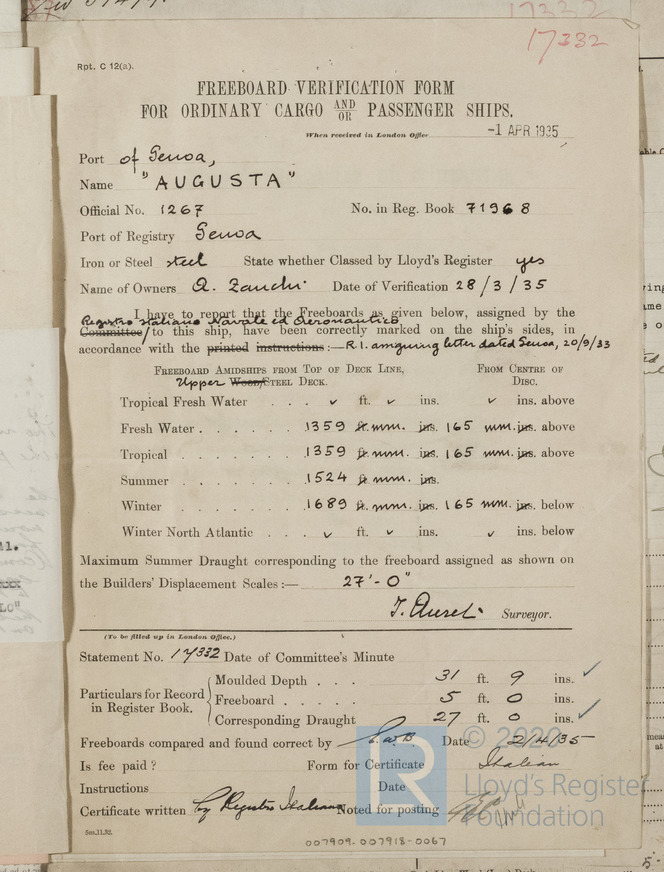 17332
17332
Rpt. C 12(a).
FREEBOARD VERIFICATION FORM
FOR ORDINARY CARGO AND/OR PASSENGER SHIPS.
When received in London Office -1 APR 1935
Port of Genoa,
Name "AUGUSTA"
Official No. 1267 No. in Reg. Book 71968
Port of Registry Genoa
Iron or Steel steel State whether Classed by Lloyd's Register yes
Name of Owners A. Zanchi Date of Verification 28/3/35
I have to report that the Freeboards as given below, assigned by the
Registro Italiano Navale ed Aeronautico
Committee/to this ship, have been correctly marked on the ship's sides, in
accordance with the printed instructions:—R.I. assigning letter dated Genoa, 20/9/33
FREEBOARD AMIDSHIPS FROM TOP OF DECK LINE, FROM CENTRE OF
Upper Wood/STEEL DECK. DISC.
Tropical Fresh Water . . . ✓ ft. ✓ ins. ✓ ins. above
Fresh Water . . . . . . 1359 ft. mm. ins. 165 mm. ins. above
Tropical . . . . . . . 1359 ft. mm. ins. 165 mm. ins. above
Summer . . . . . . . 1524 ft. mm. ins.
Winter . . . . . . . 1689 ft. mm. ins. 165 mm. ins. below
Winter North Atlantic . . . ✓ ft. ✓ ins. ✓ ins. below
Maximum Summer Draught corresponding to the freeboard assigned as shown on
the Builders' Displacement Scales:— 27'-0"
Surveyor.
(To be filled up in London Office.)
Statement No. 17332 Date of Committee's Minute
Particulars for Record in Register Book.
Moulded Depth . . . 31 ft. 9 ins. ✓
Freeboard . . . . . 5 ft. 0 ins.
Corresponding Draught 27 ft. 0 ins. ✓
Freeboards compared and found correct by Date 2/4/35
Is fee paid? Form for Certificate Italian
Instructions Date
Certificate written by Registro Italiano Noted for posting
5m,11,32.
© 2020
Lloyd's Register
Foundation
007909-007918-0067